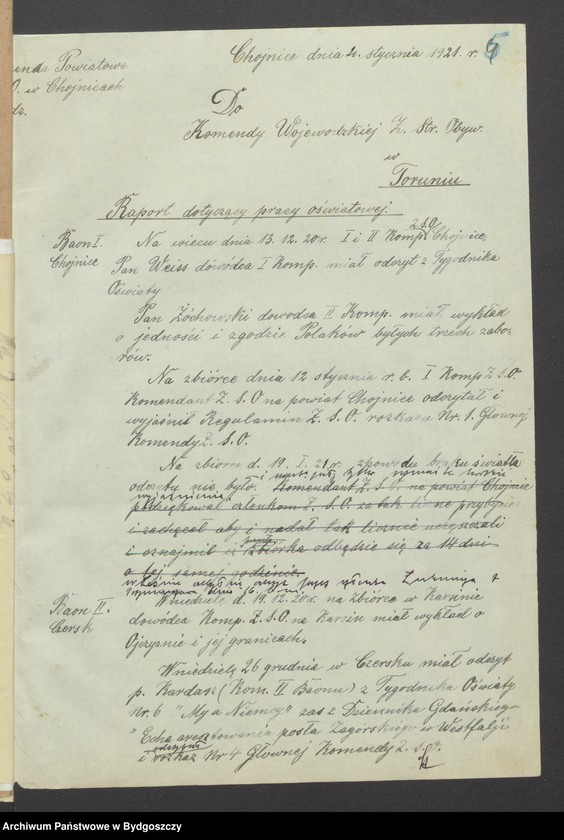 Chojnice dnia 21. stycznia 1921. r.
enda Powiatowa
O. w Chojnicach
dz.
Do
Komendy Wojewodzkiej Z. Str. Obyw.
w
Toruniu
Raport dotyczący pracy oświatowej.
Baon I.
Chojnice
Na wiecu dnia 13. 12. 20r. I i II Komp. Z.S.O. Chojnice,
Pan Weiss dowódca I Komp. miał odczyt z Tygodnika
Oświaty
Pan Żóchowski dowodca II Komp. miał wykład
o jedności i zgodzie Polaków byłych trzech zabo-
rów.
Na zbiórce dnia 12 stycznia r. b. I Komp Z. S. O.
Komendant Z. S. O na powiat Chojnice odczytał i
wyjaśnił Regulamin Z. S. O. rozkazu Nr. 1. Głownej
Komendy Z. S. O.
Na zbiorce d. 19. I. 21. r. z powodu braku światła
odczytu nie było. Komendant Z. S. O. na powiat Chojnice
podziękował członkom Z. S. O. za tak liczne przybycie
i zachęcał aby i nadal tak licznie uczęszczali
i oznajmił iż zbiorka odbędzie się za 14 dni
o tej samej godzinie.
Baon II.
Czersk
W niedziele d. 19. 12. 20r. na zbiorce w Karsinie
dowódca Komp. Z. S. O. na Karsin miał wykład o
Ojczyznie i jej granicach.
W niedzielę 26 grudnia w Czersku miał odczyt
p. Kardasz (Kom. II Baonu) z Tygodnika Oświaty
Nr. 6 "My a Niemcy" zaś z Dziennika Gdańskiego
"Echa aresztowania posła Zagórskiego w Westfalji
i odczytał rozkaz Nr 4 Głownej Komendy Z. S. O".
Archiwum Państwowe w Bydgoszczy